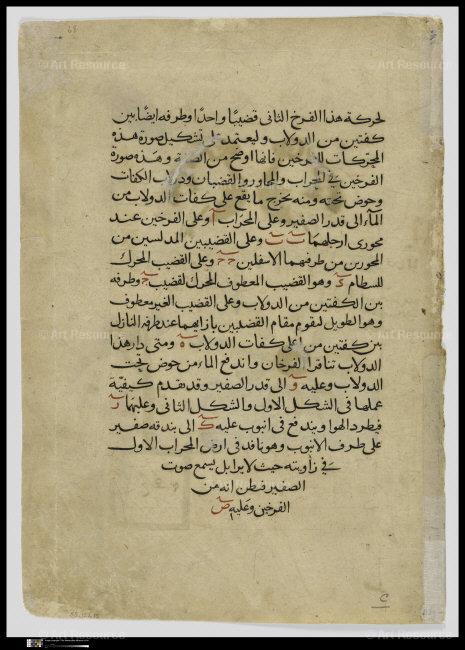 لحركة هذا الفرخ الثانى قضيبًا واحدًا وطرفه ايضًا بين
كفتين من الدولاب وليعتمد على تشكيل صورة هذه
المحركات للفرخين فانها اوضح من الصفة وهذه صورة
الفرخين فى المحراب والمحاور والقضبان ودولاب الكفات
وحوض تحته ومنه يخرج ما يقع على كفات الدولاب من
الماء الى قدر الصفير وعلى المحراب آ وعلى الفرخين عند
محورى ارجلهما ب ب وعلى القضيبين المدلسين من
المحورين من طرفهما الاسفلين ح ح وعلى القضيب المحرك
للسطام د وهو القضيب المعطوف المحرك لقضيب ح وطرفه
بين الكفتين من الدولاب وعلى القضيب الغير معطوف
وهو الطويل ليقوم مقام القضيبين بازايهما عند طرفه النازل
بين كفتين من اعلى كفات الدولاب ه ومتى دار هذا
الدولاب تنافر الفرخان واندفع الماء من حوض تحت
الدولاب وعليه و الى قدر الصفير وقد تقدم كيفية
عملها فى الشكل الاول والشكل الثانى وعليها ز
فيطرد الهوا ويندفع فى انبوب عليه ك الى بندقه صفير
على طرف الانبوب وهو نافد فى ارض المحراب الاول
فى زاويته حيث لا يرا بل يسمع صوت
الصفير فيظن انه من
الفرخين وعليه ص